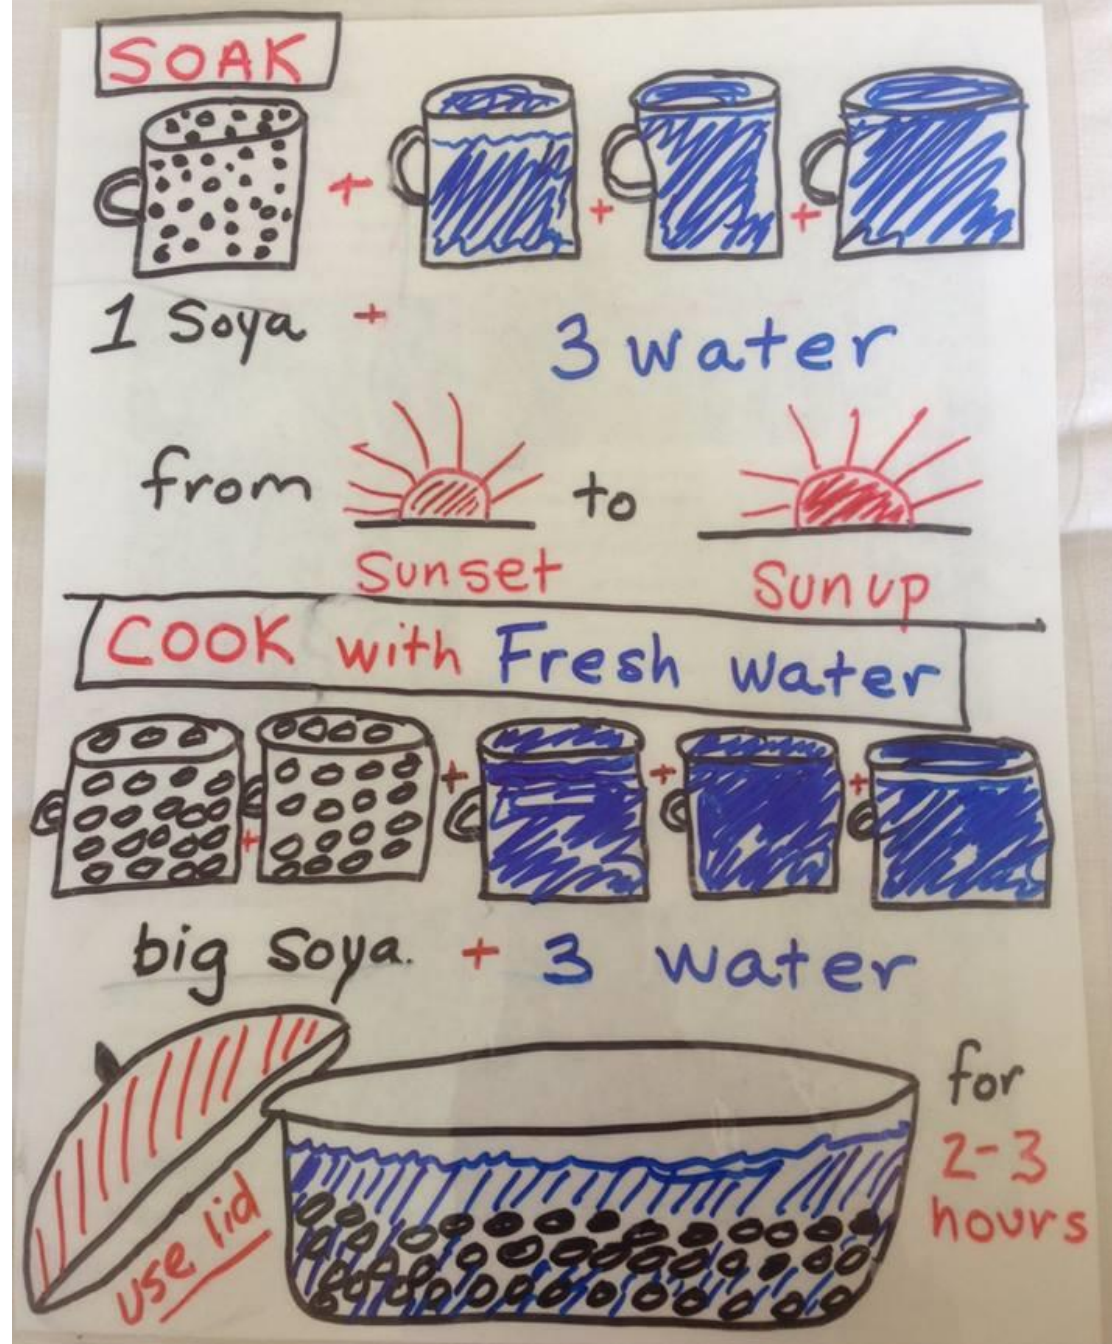 SOAK
+ + +
1 Soya + 3 water
from to
Sunset Sun up
COOK with Fresh water
+ + + +
big soya. + 3 water
for
2-3
hours
use lid